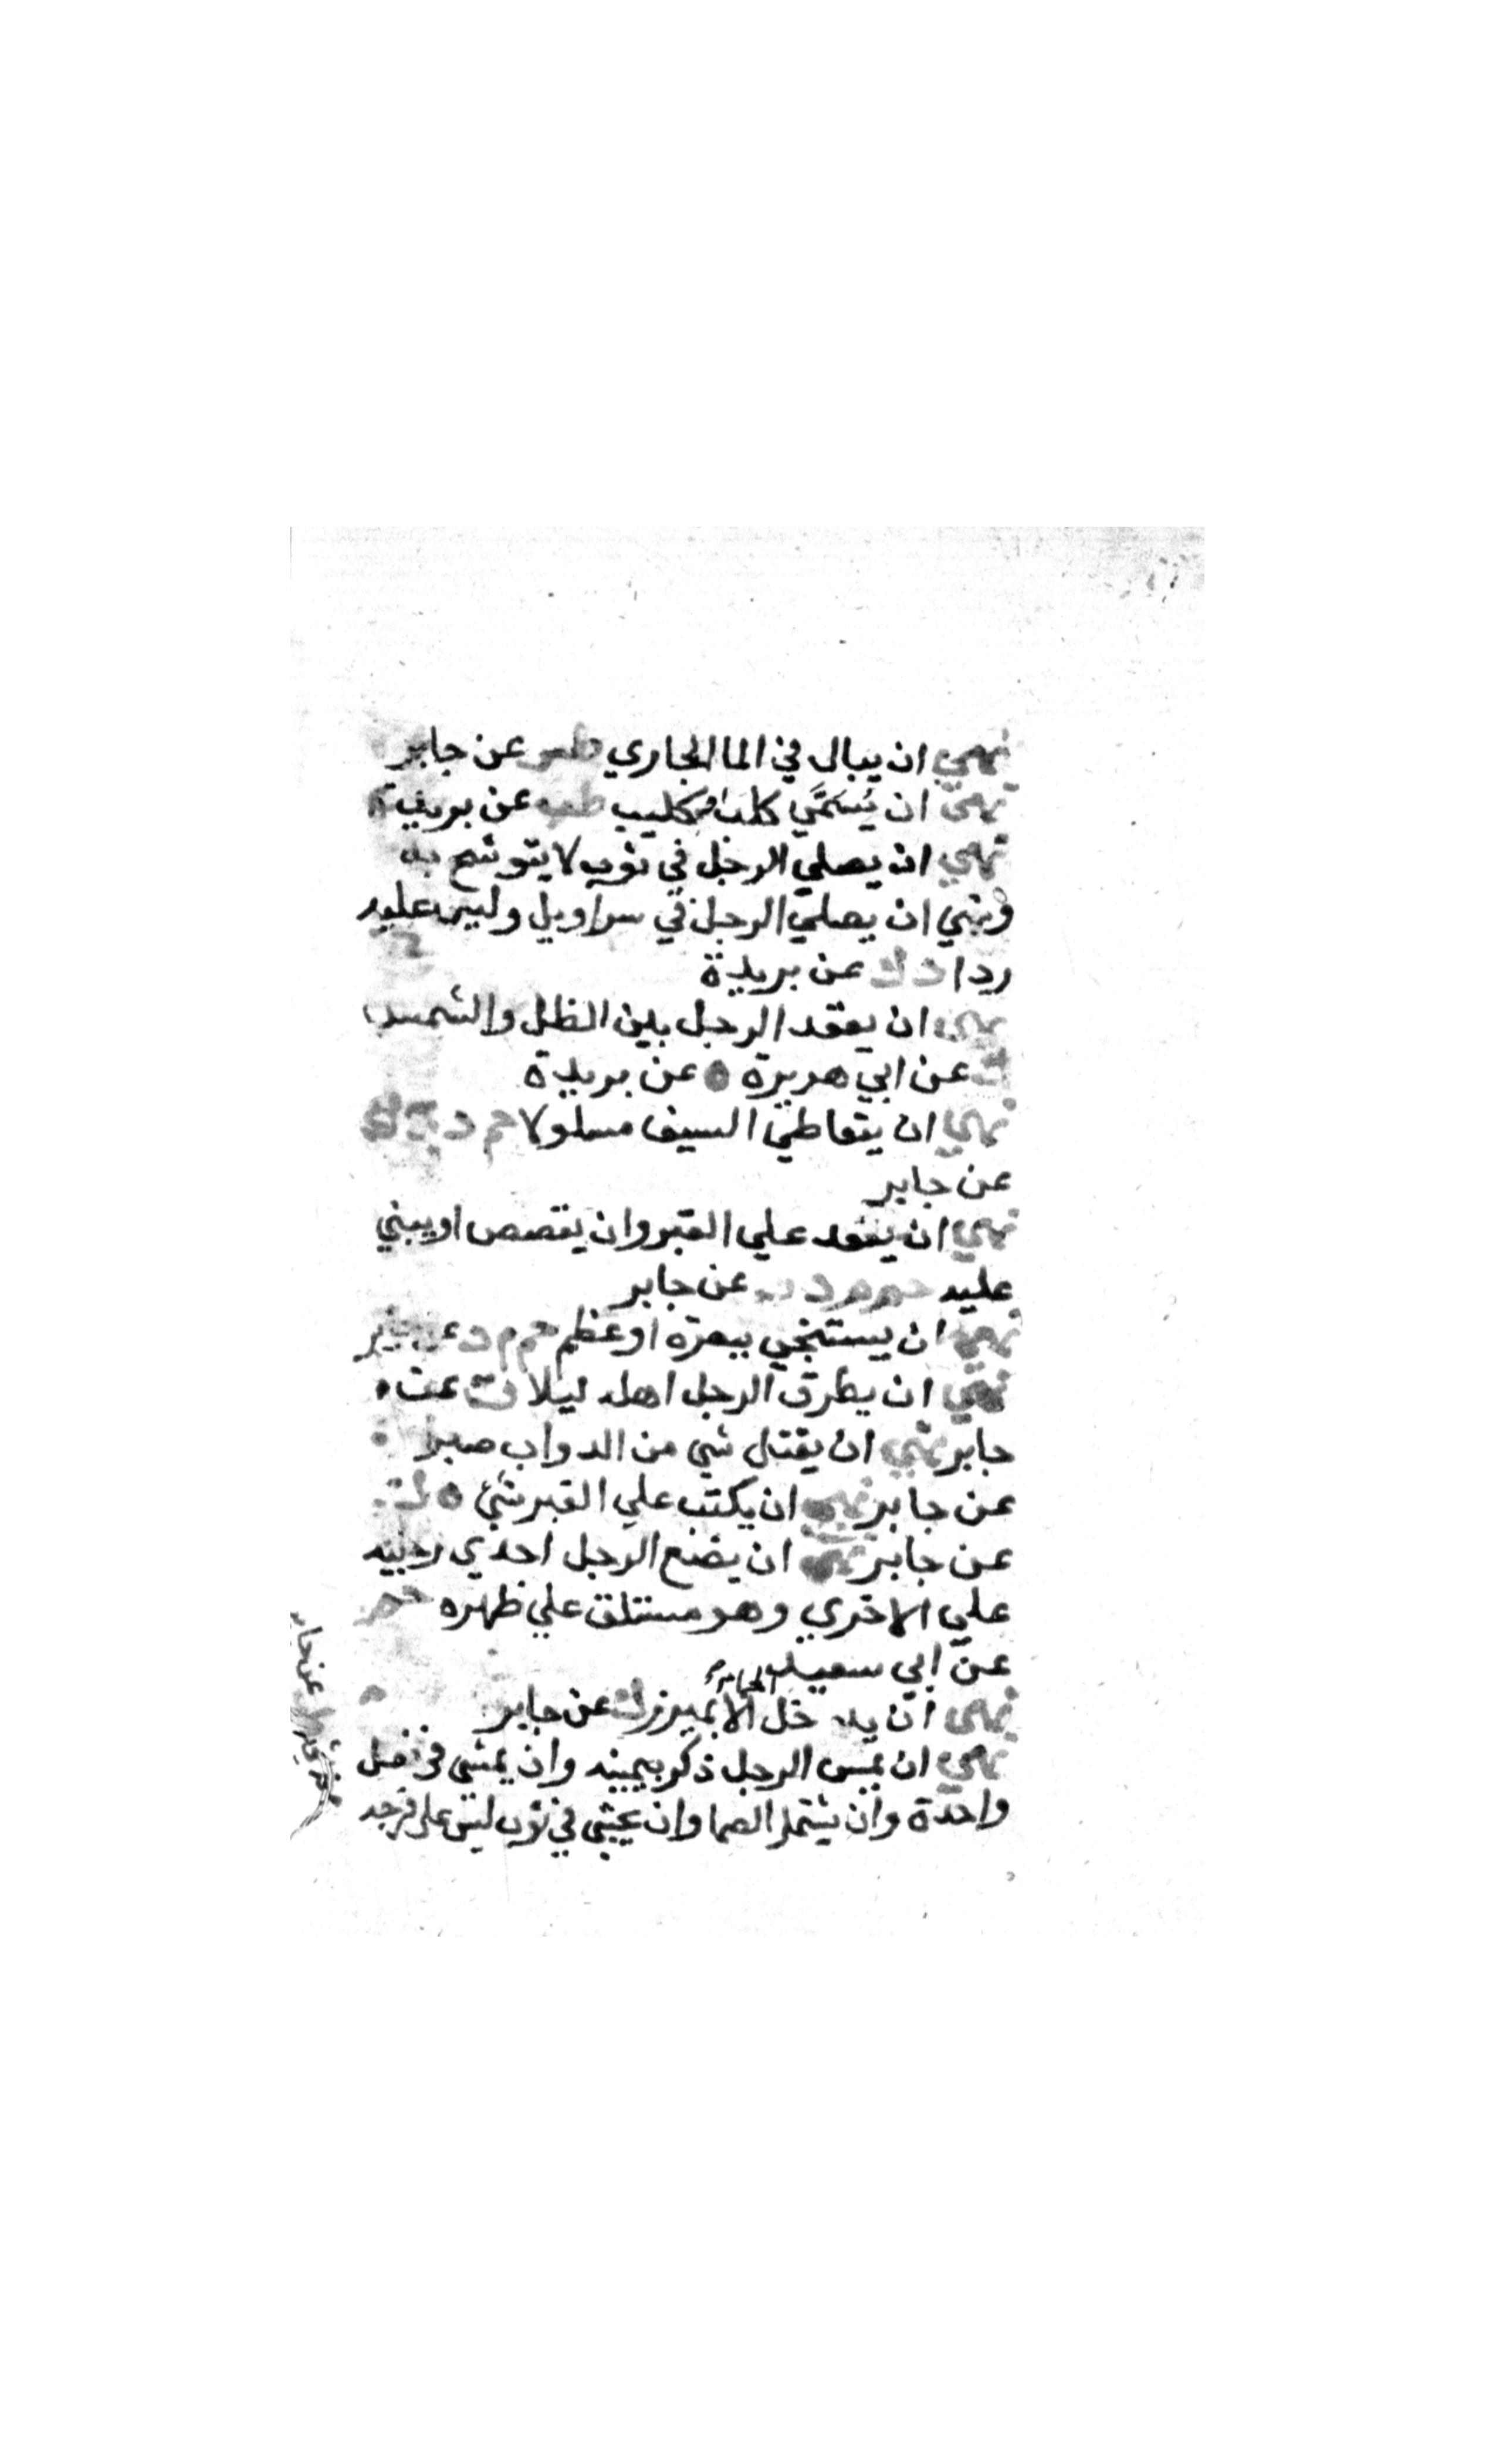 نهي ان يبال في الما الجاري طس عن جابر
نهى ان يُسَمَّي كلب او كليب طب عن بريدة
نهي ان يصلي الرجل في ثوب لا يتوشح به
ونهي ان يصلي الرجل في سراويل وليس عليه
ردا د ك عن بريدة
نهي ان يقعد الرجل بين الظل والشمس
ك عن ابي هريرة ه عن بريدة
نهي ان يتعاطي السيف مسلولا حم د ت ك
عن جابر
نهي ان يقعد علي القبر وان يقصص او يبني
عليه حم م د ن عن جابر
نهي ان يستنجي ببعرة او عظم حم م د عن جابر
نهي ان يطرق الرجل اهله ليلا ق عن
جابر نهي ان يقتل شي من الدواب صبرا
عن جابر نهي ان يكتب علي القبر شئ ه ك
عن جابر نهي ان يضع الرجل احدي رجليه
علي الاخري وهو مستلق علي ظهره حم
عن ابي سعيد
نهى ان يدخل الما الا بميزر ك عن جابر
نهي ان يمس الرجل ذكره بيمينه وان يمشي في نعل
واحدة وان يشتمل الصما وان يحتبي في ثوب ليس علي فرجه
عن جابر